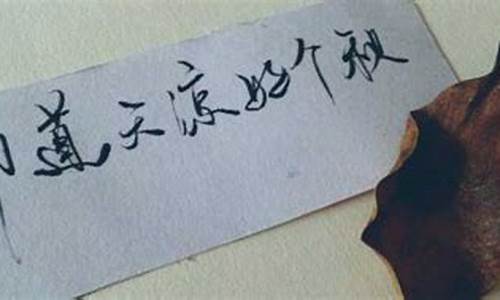 道天凉好个秋